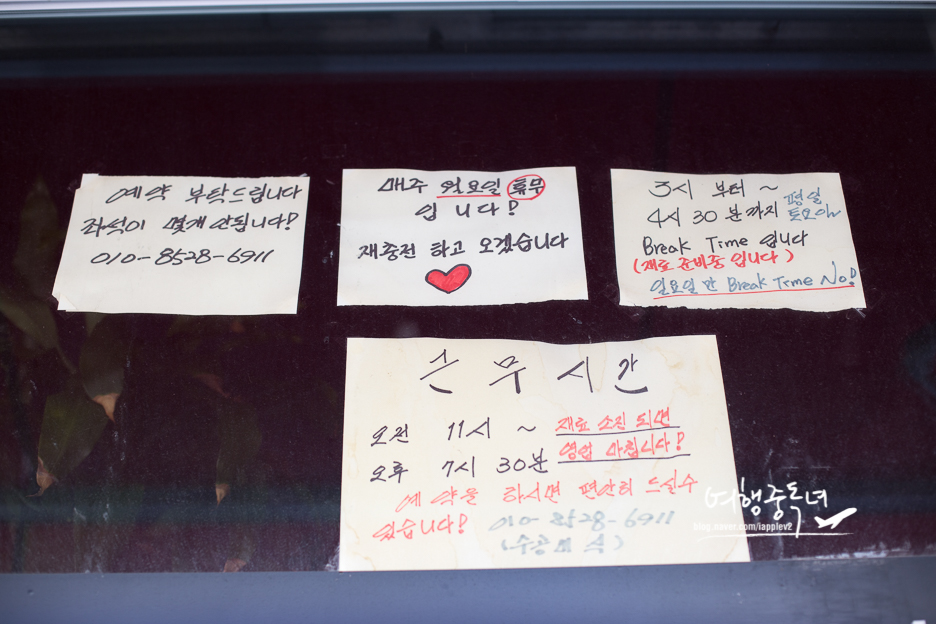 예약 부탁드립니다
좌석이 몇개 안됩니다!
010-8528-6911
매주 월요일 휴무
입니다!
재충전 하고 오겠습니다
3시 부터 ~
4시 30분까지 평일
토요일
Break Time 입니다
(재료 준비중 입니다)
일요일만 Break Time No!
근무시간
오전 11시 ~ 재료 소진 되면
영업 마칩니다!
오후 7시 30분
예약을 하시면 편안히 드실수
있습니다! 010-8528-6911
여행중독녀
blog.naver.com/iapplev2